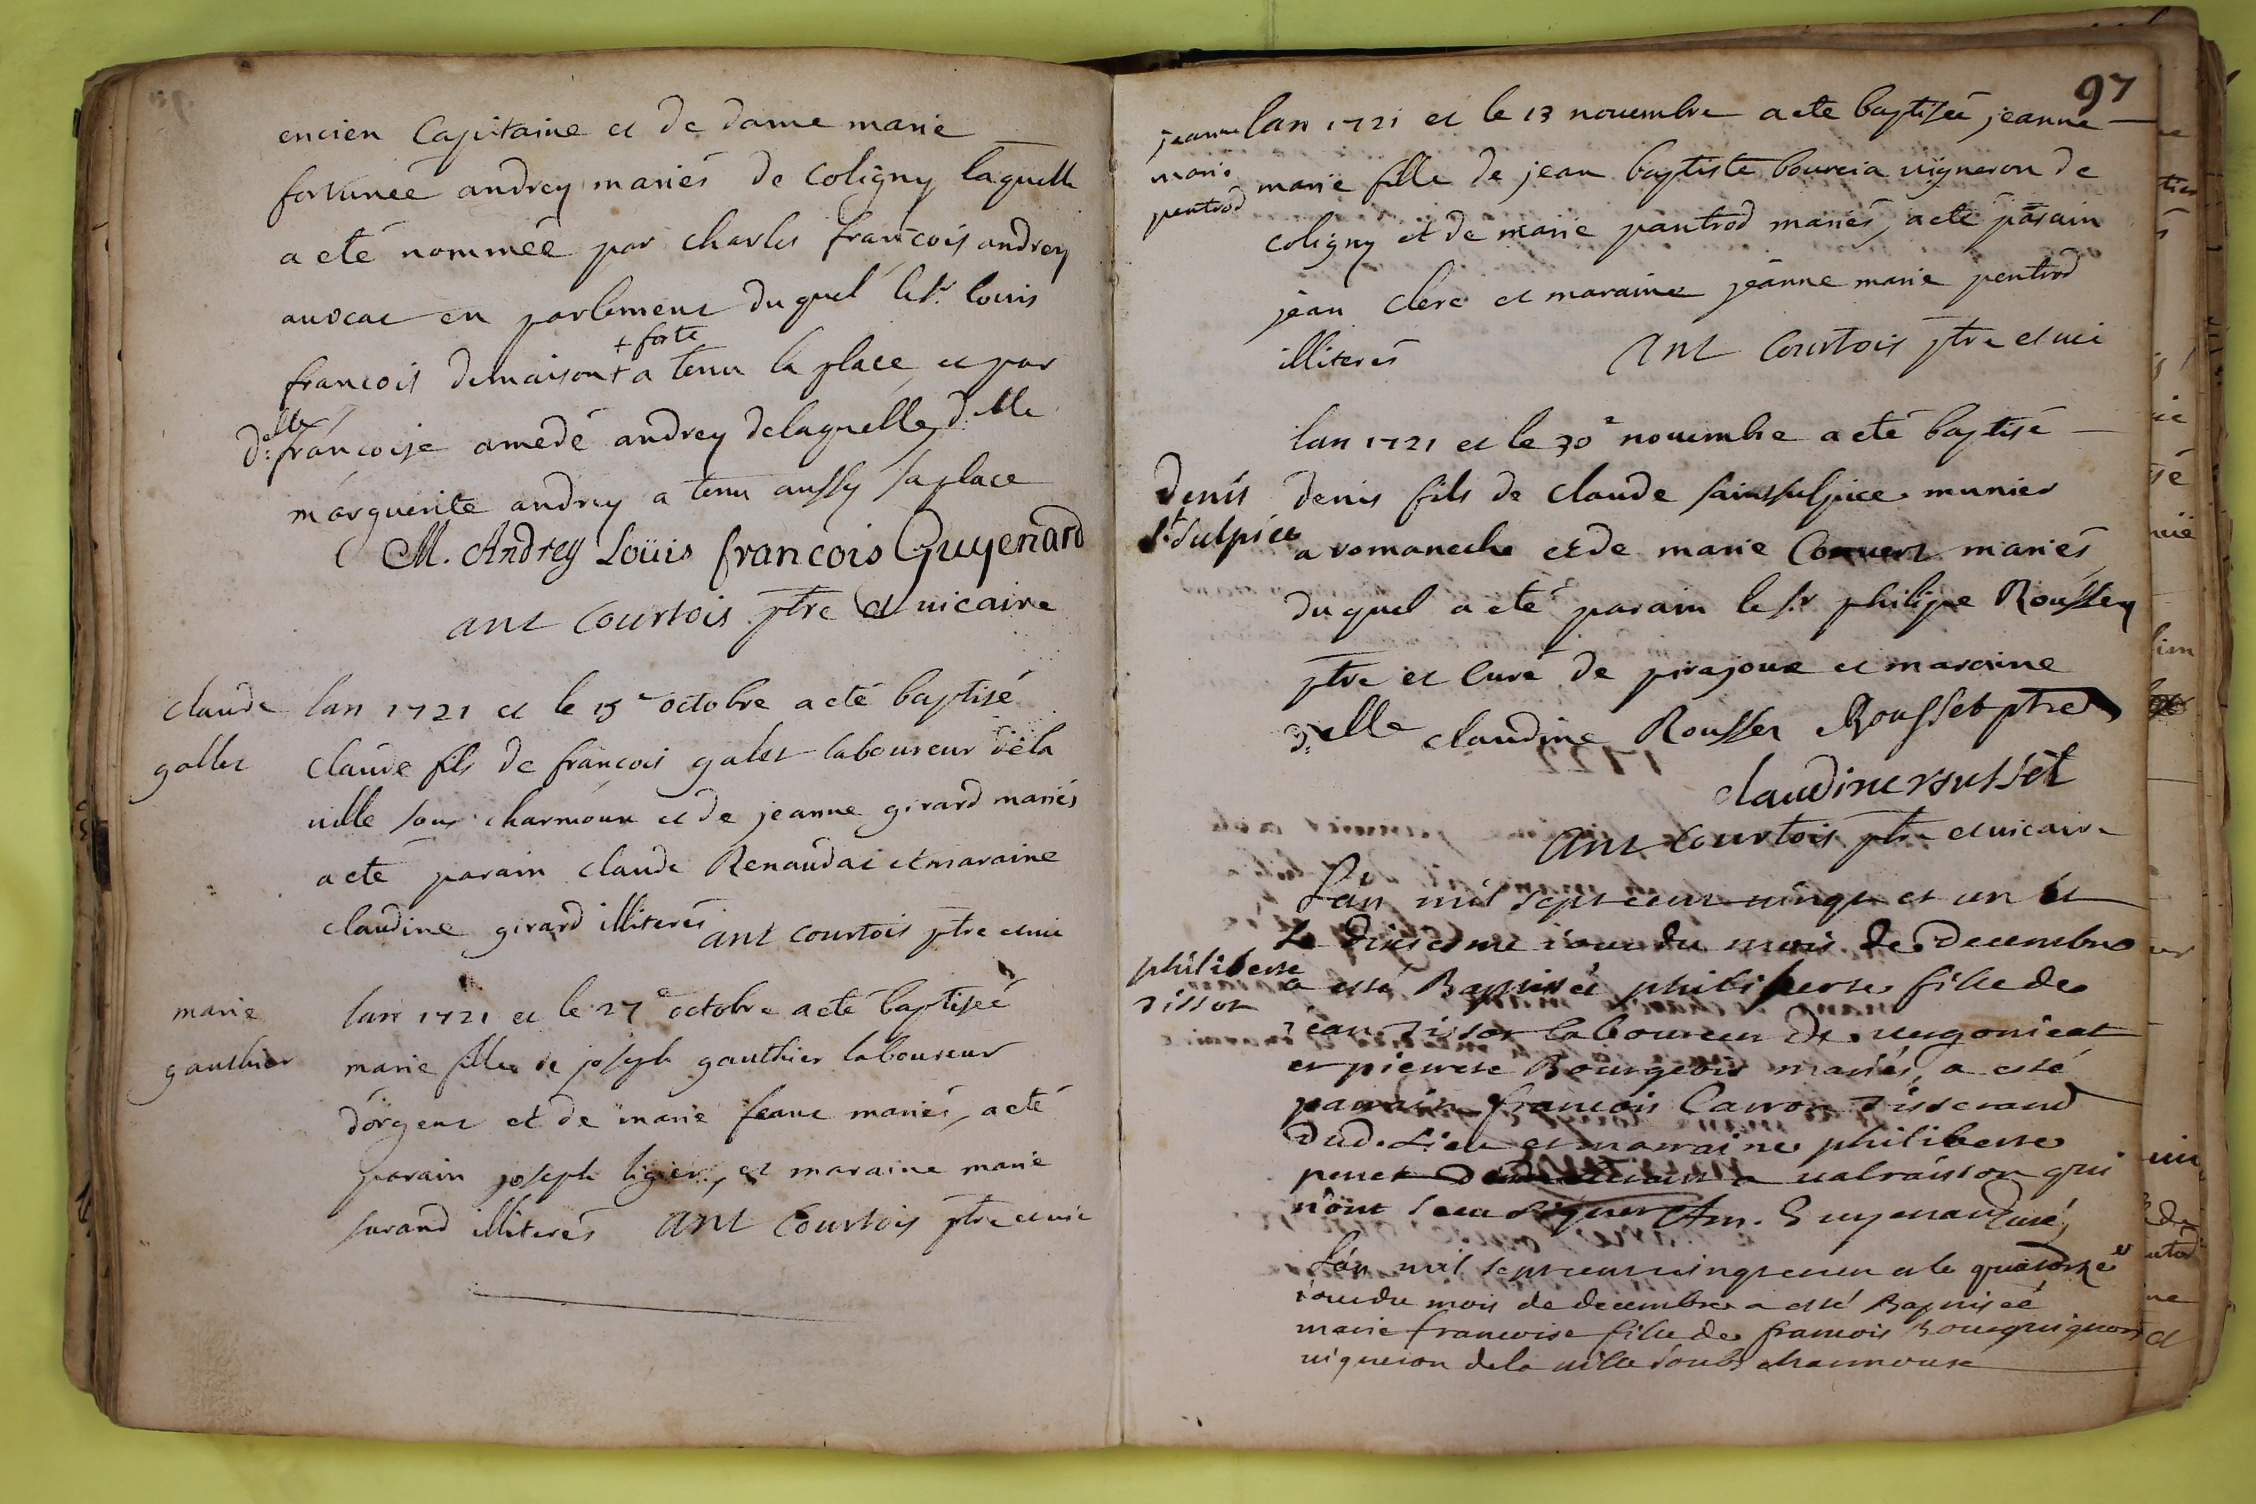 encien Capitaine et de dame marie
fortuneé andrey mariés de Coligny laquelle
a eté nommeé par charles francois andrey
auocat en parlement duquel le Sr. louis
+ forte
francois demaison+ a tenu la place et par
d:elle francoise amedé andrey delaquelle d:elle
marguerite andrey a tenu aussy sa place
M. Andrey Loüis francois Guyenard
ant Courtois ptre et uicaire
claude
gallet
lan 1721 et le 15e octobre a eté baptisé
claude fils de francois galet laboureur de la
uille sous charmoux et de jeanne girard mariés
a eté parain claude Renaudat et maraine
claudine girard illiterés ant courtois ptre et uic
marie
gauthier
lan 1721 et le 27e octobre a eté baptiseé
marie fille de joseph gauthier laboureur
dorgent et de marie feaux mariés, a eté
parain joseph ligier, et maraine marie
surand illiterés ant Courtois ptre et uic
97
jeanne
marie
pentrod
lan 1721 et le 13 nouembre a eté baptiseé jeanne
marie fille de jean baptiste bourcia uigneron de
coligny et de marie pantrod mariés, a eté parain
jean clerc et maraine jeanne marie pentrod
illiterés ant Courtois ptre et uic
lan 1721 et le 30e nouembre a eté baptisé
denis
St. Sulpice
denis fils de claude saintsulpice munier
a romaneche et de marie Convert mariés
duquel a eté parain le Sr philipe Roussey
ptre et Curé de pirajoux et maraine
d:elle claudine Rousset Rousset ptre
claudine rousset
ant Courtois ptre et uicaire
L'an mil sept cent uingt et un et
le dixieme iour du mois de decembre
philiberte
Tissot
a esté Baptiseé philiberte fille de
Jean Tissot laboureur de uergonieat
et pierrete Bourgeois mariés, a esté
parrain francois Carron Tisserand
dud. Lieu et marraine philiberte
penet a ualraisson qui
n'ont sceu signer Am. Guyenard Curé,
L'an mil sept cent uingt et un et le quatorzeer
iour du mois de decembre a esté Baptiseé
marie francoise fille de francois Bourguignon
uigneron de la uille soubs charmoux